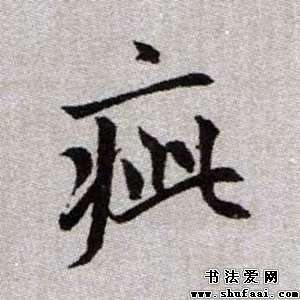 疵
书法爱网
www.shufaai.com